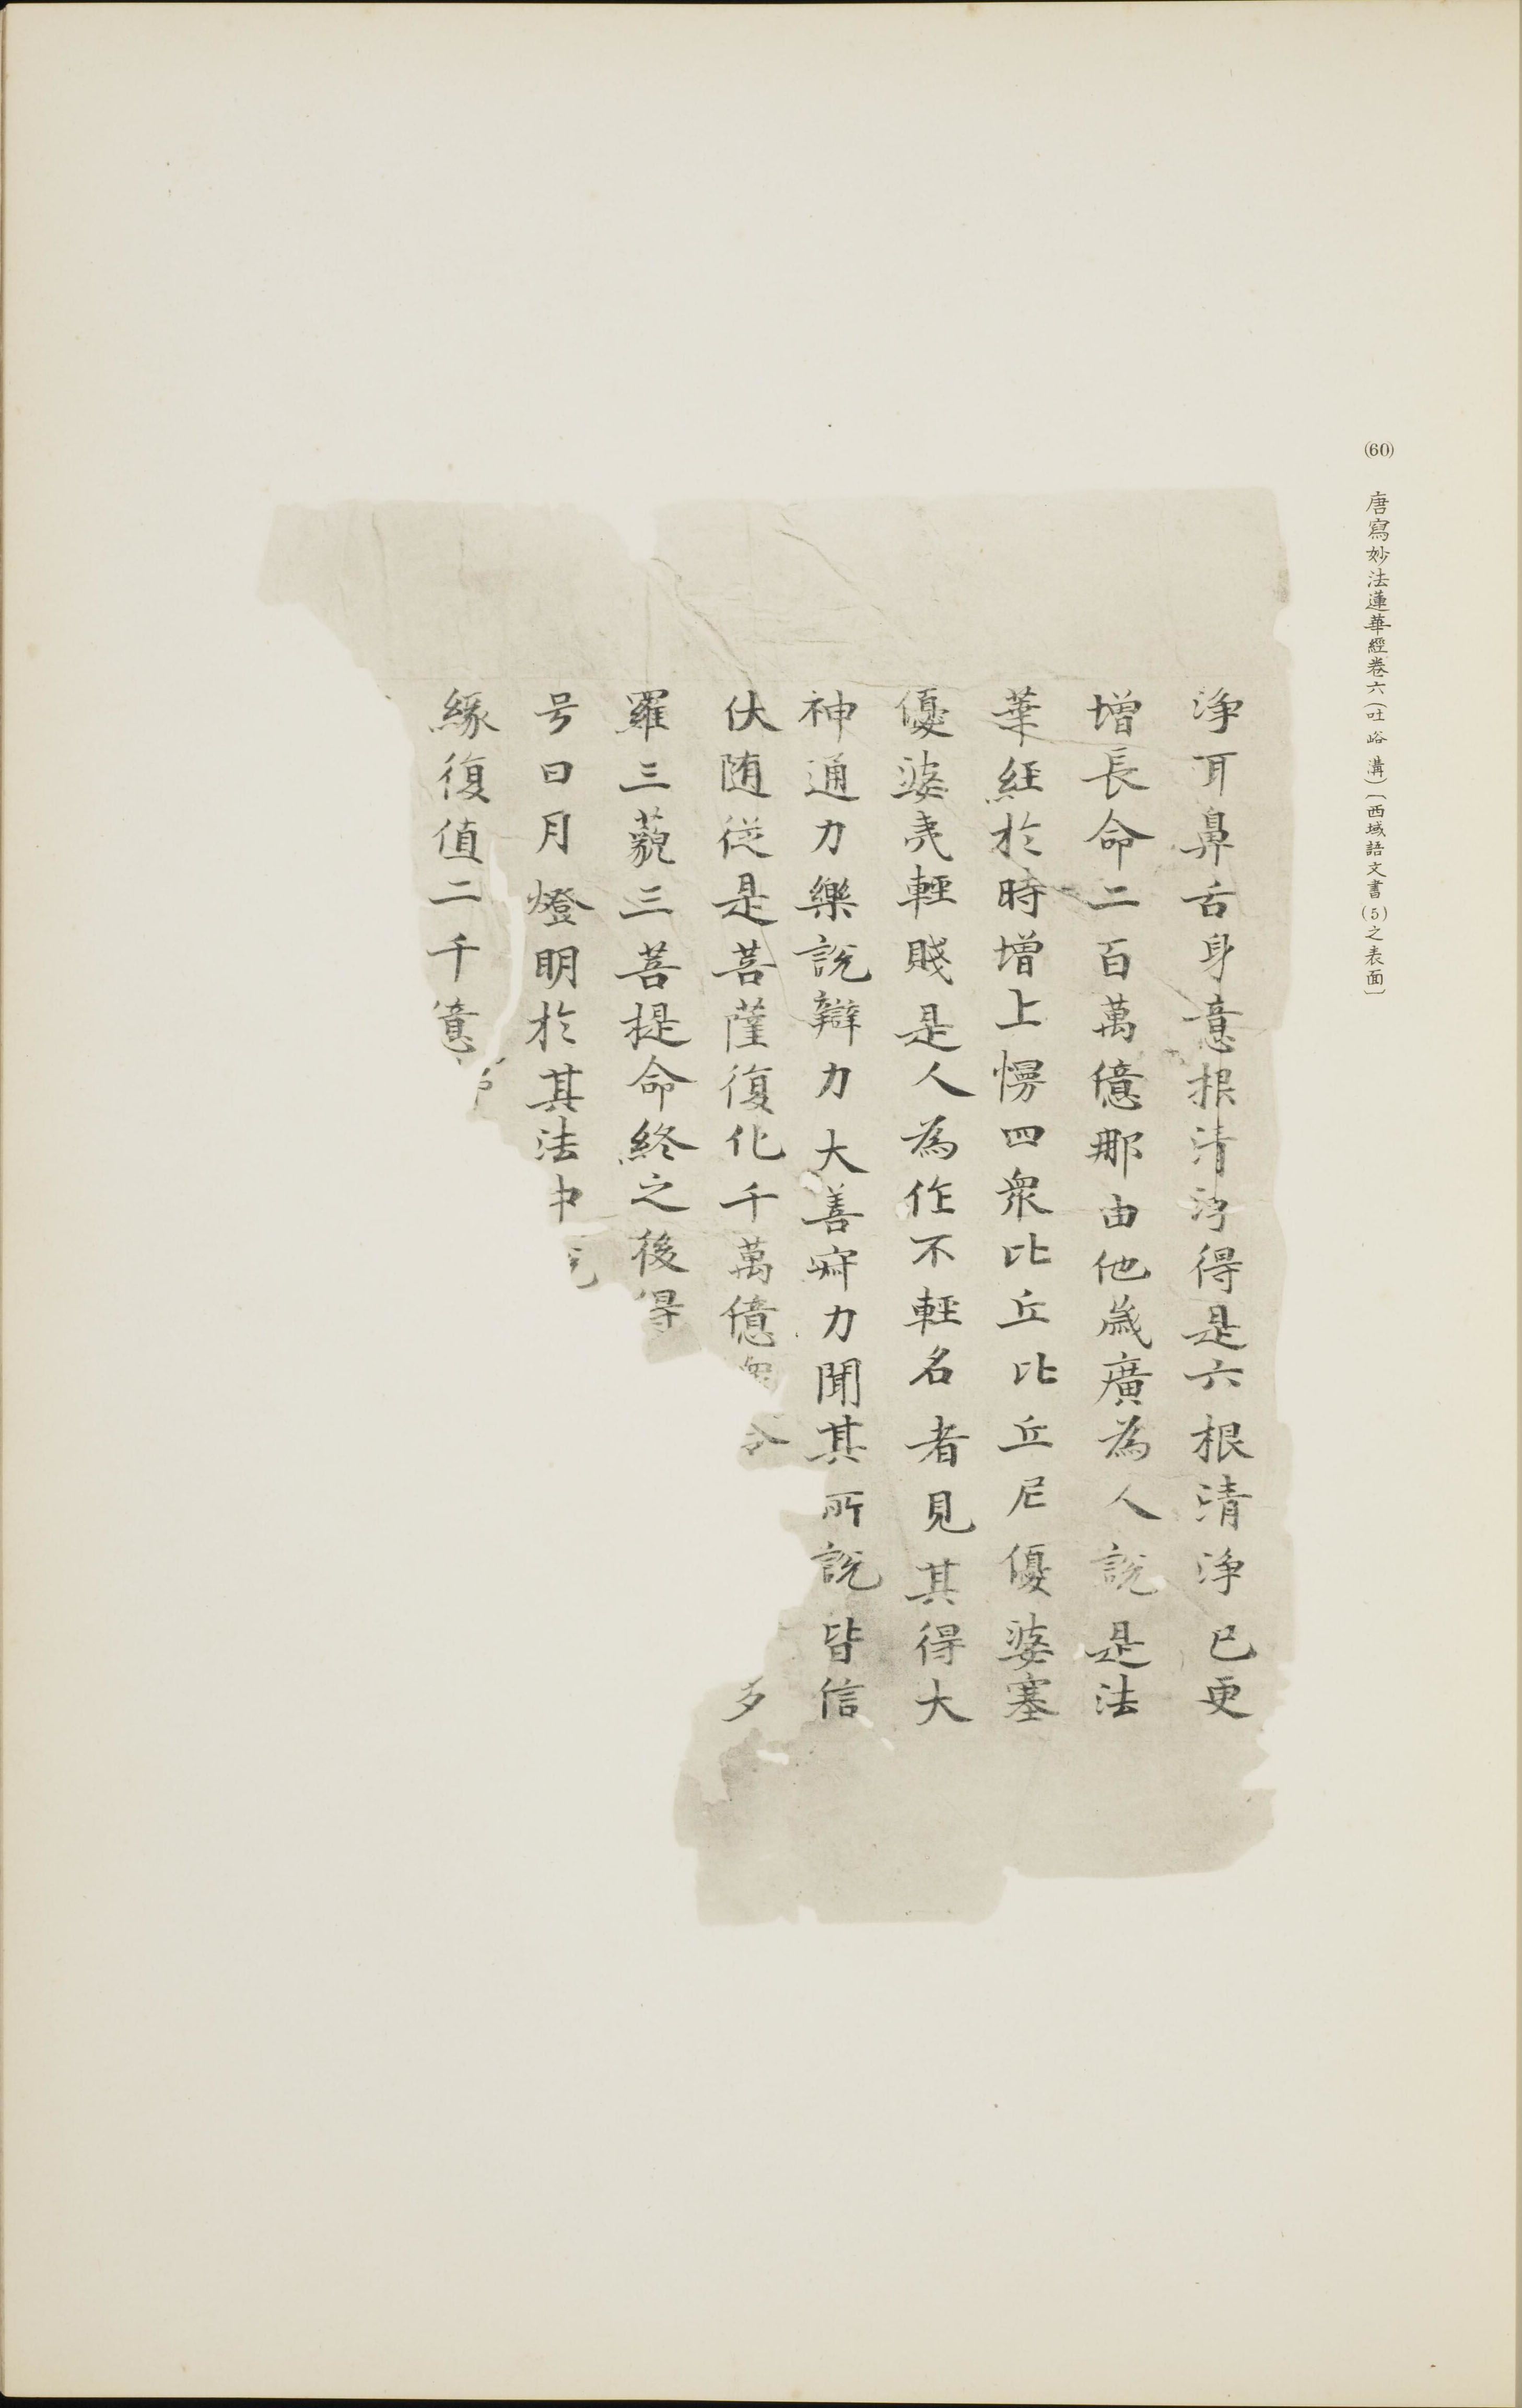 (60) 唐寫妙法蓮華經卷六(吐峪溝)〔西域語文書(5)之表面〕
淨耳鼻舌身意根清淨得是六根清淨已更
增長命二百萬億那由他歲廣為人說是法
華經於時增上慢四眾比丘比丘尼優婆塞
優婆夷輕賤是人為作不輕名者見其得大
神通力樂說辯力大善寂力聞其所說皆信
伏随從是菩薩復化千萬億眾令多
羅三藐三菩提命終之後得
号日月燈明於其法中
緣復值二千億